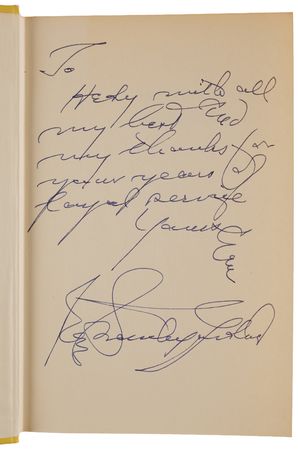 To
Hedy with all
my best And
my thanks for
your years of
loyal service
Yours